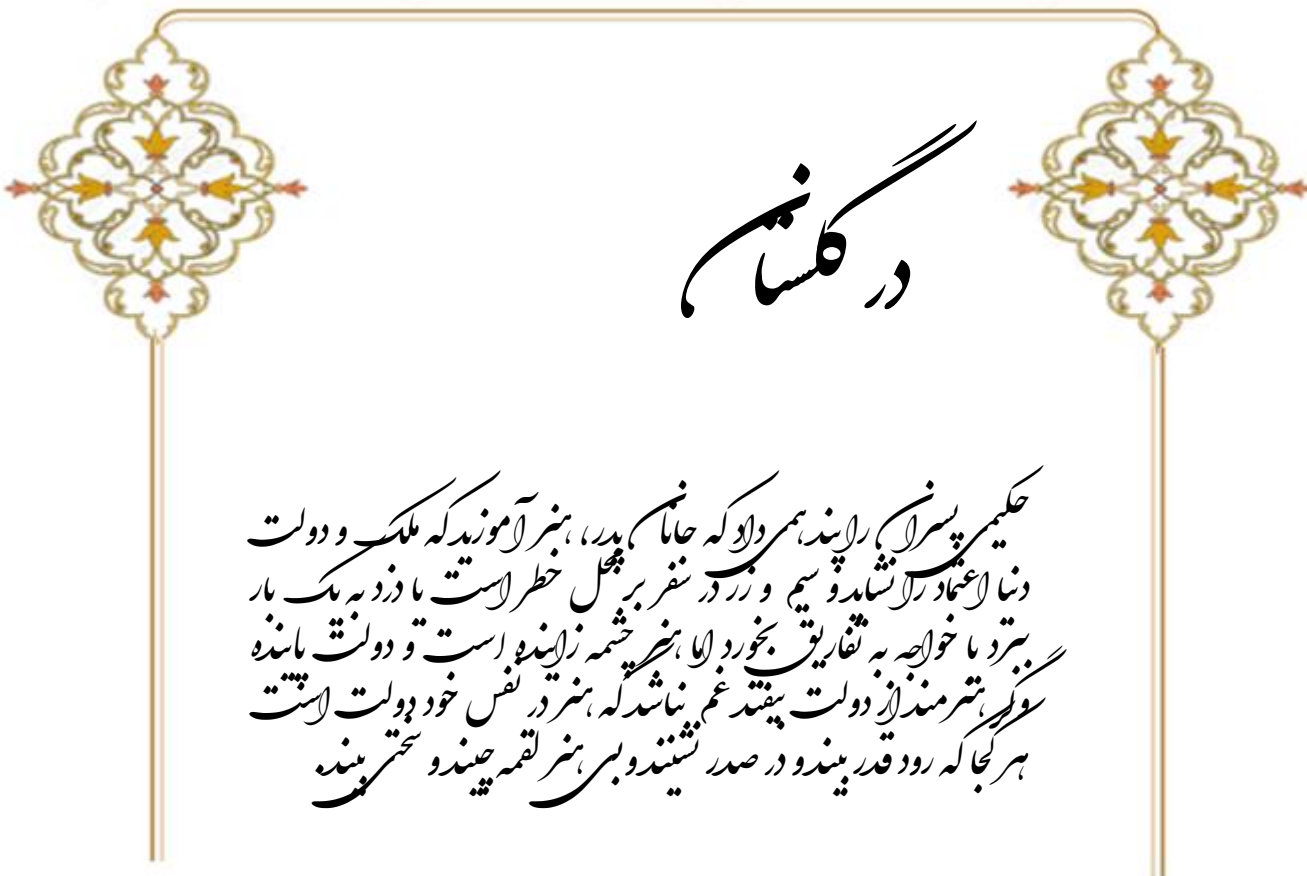 در گلستان
حکیمی پسران را پند همی داد که جانان پدر، هنر آموزید که ملک و دولت
دنیا اعتماد را نشاید و سیم و زر در سفر بر محل خطر است یا دزد به یک بار
ببرد یا خواجه به تفاریق بخورد اما هنر چشمه زاینده است و دولت پاینده
وگر هنرمند از دولت بیفتد غم نباشد که هنر در نفس خود دولت است
هر کجا که رود قدر بیند و در صدر نشیند و بی هنر لقمه چیند و سختی بیند.